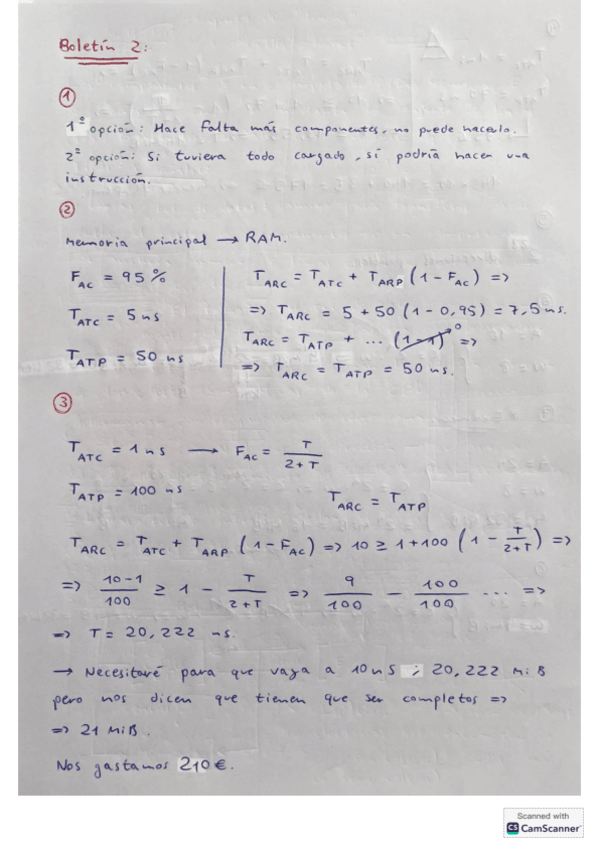 Boletín 2:
1
1ª opción: Hace falta más componentes, no puede hacerlo.
2ª opción: Si tuviera todo cargado, sí podría hacer una
instrucción.
2
Memoria principal → RAM.
F_AC = 95 %
T_ATC = 5 ns
T_ATP = 50 ns
T_ARC = T_ATC + T_ARP (1 - F_AC) =>
=> T_ARC = 5 + 50 (1 - 0,95) = 7,5 ns.
T_ARC = T_ATP + ... (1 - 1) 0 =>
=> T_ARC = T_ATP = 50 ns.
3
T_ATC = 1 ns → F_AC = T / 2+T
T_ATP = 100 ns T_ARC = T_ATP
T_ARC = T_ATC + T_ARP (1 - F_AC) => 10 ≥ 1 + 100 (1 - T / 2+T) =>
=> 10-1 / 100 ≥ 1 - T / 2+T => 9 / 100 - 100 / 100 ... =>
=> T = 20,222 ns.
→ Necesitaré para que vaya a 10 ns ; 20,222 MiB
pero nos dicen que tienen que ser completos =>
=> 21 MiB.
Nos gastamos 210 €.
Scanned with
CS CamScanner